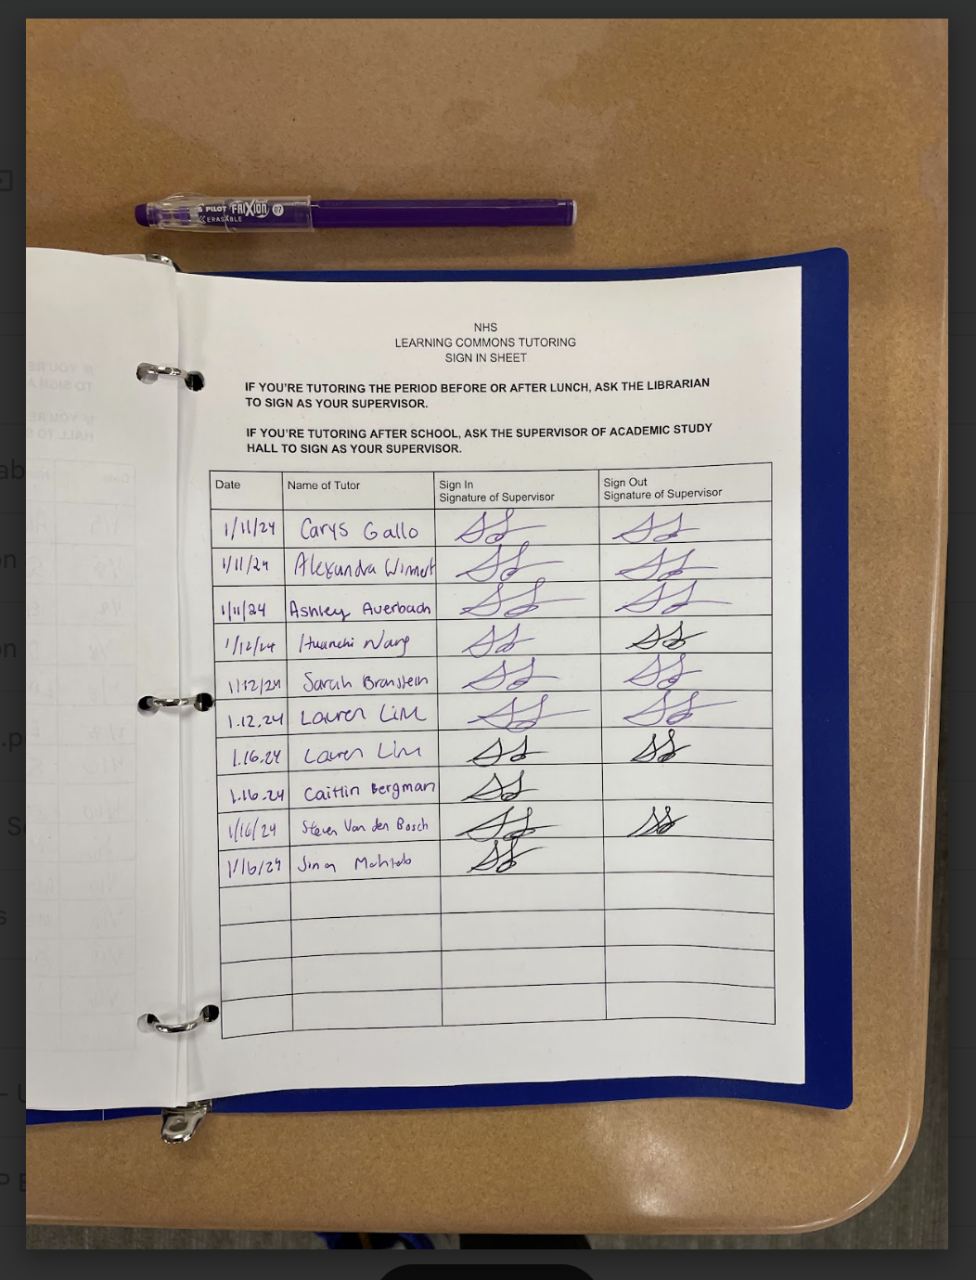 PILOT FRIXION 07
ERASABLE
NHS
LEARNING COMMONS TUTORING
SIGN IN SHEET
IF YOU'RE TUTORING THE PERIOD BEFORE OR AFTER LUNCH, ASK THE LIBRARIAN
TO SIGN AS YOUR SUPERVISOR.
IF YOU'RE TUTORING AFTER SCHOOL, ASK THE SUPERVISOR OF ACADEMIC STUDY
HALL TO SIGN AS YOUR SUPERVISOR.
Date Name of Tutor Sign In Signature of Supervisor Sign Out Signature of Supervisor
1/11/24 Carys Gallo
1/11/24 Alexandra
1/11/24 Ashley Auerbach
1/12/24 Wang
1/12/24 Sarah Branstein
1.12.24 Lauren Lim
1.16.24 Lauren Lim
1.16.24 Caitlin Bergman
1/16/24 Steven Van den Bosch
1/16/24